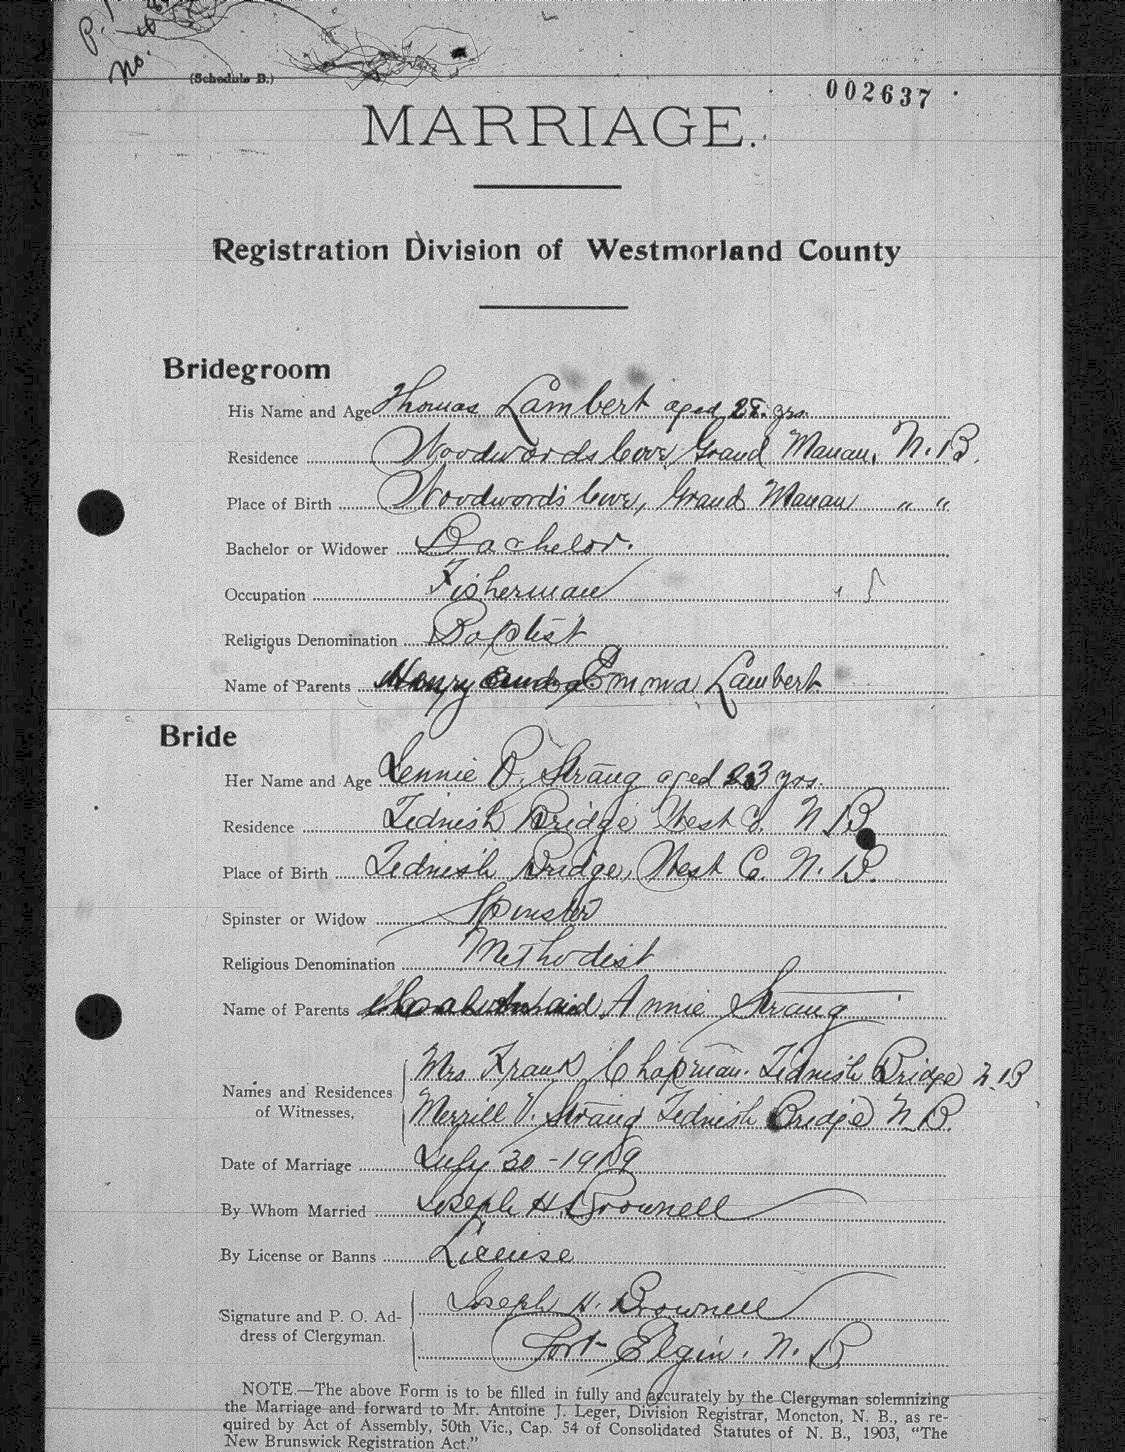 P.
No.
(Schedule B.)
002637
MARRIAGE.
Registration Division of Westmorland County
Bridegroom
His Name and Age Thomas Lambert aged 28 yrs.
Residence Woodwords Cove, Grand Manan, N.B.
Place of Birth Woodword's Cove, Grand Manan " "
Bachelor or Widower Bachelor.
Occupation Fisherman
Religious Denomination Baptist
Name of Parents Henry and Emma Lambert
Bride
Her Name and Age Lennie B. Strang aged 23 yrs.
Residence Tidnish Bridge West Co. N.B.
Place of Birth Tidnish Bridge, West Co. N.B.
Spinster or Widow Spinster
Religious Denomination Methodist
Name of Parents Annie Strang
Names and Residences of Witnesses, Mrs Frank Chapman. Tidnish Bridge N.B
Merrill V. Strang Tidnish Bridge N.B.
Date of Marriage July 30 - 1919
By Whom Married Joseph H. Brownell
By License or Banns License
Signature and P. O. Ad- Joseph H. Brownell
dress of Clergyman. Port Elgin. N.B
NOTE.—The above Form is to be filled in fully and accurately by the Clergyman solemnizing
the Marriage and forward to Mr. Antoine J. Leger, Division Registrar, Moncton, N. B., as re-
quired by Act of Assembly, 50th Vic., Cap. 54 of Consolidated Statutes of N. B., 1903, "The
New Brunswick Registration Act."